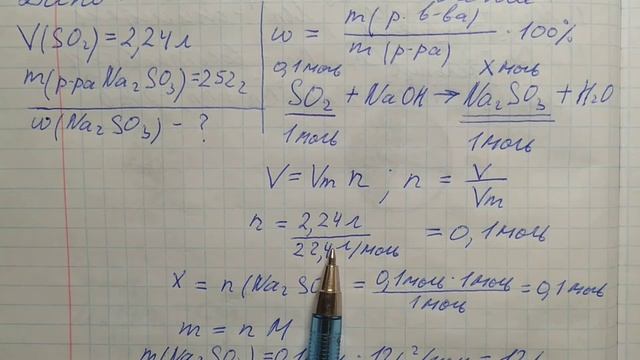 V(SO₂)=2,24л
m(р-ра Na₂SO₃)=252г
w(Na₂SO₃) - ?
w = m(р. в-ва) / m(р-ра) · 100%
0,1моль X моль
SO₂ + NaOH → Na₂SO₃ + H₂O
1моль 1моль
V = Vm n ; n = V / Vm
n = 2,24л / 22,4л/моль = 0,1моль
X = n(Na₂SO = 0,1моль · 1моль / 1моль = 0,1моль
m = n M
m(Na₂SO₃)=0,1